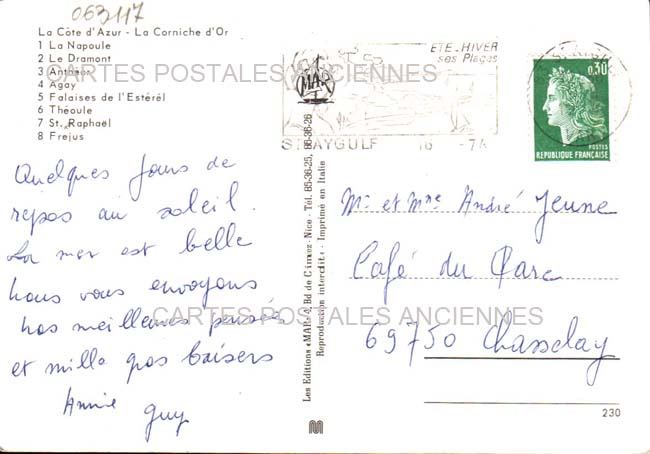 063117
La Côte d'Azur - La Corniche d'Or
1 La Napoule
2 Le Dramont
3 Anthéor
4 Agay
5 Falaises de l'Estérel
6 Théoule
7 St. Raphaël
8 Frejus
CARTES POSTALES ANCIENNES
MAR
ETE-HIVER
ses Plages
ST AYGULF 16 -7
0,30
POSTES
REPUBLIQUE FRANÇAISE
Quelques jours de
repos au soleil.
La mer est belle
nous vous envoyons
nos meilleures pensées
et mille gros baisers
Annie Guy
Les Editions «MAR» Bd de Cimiez - Nice - Tél. 85-36-25, 85-36-26
Reproduction interdite - Imprimé en Italie
Mr et Mme André Jeune
Café du Parc
CARTES POSTALES ANCIENNES
69750 Chasselay
230